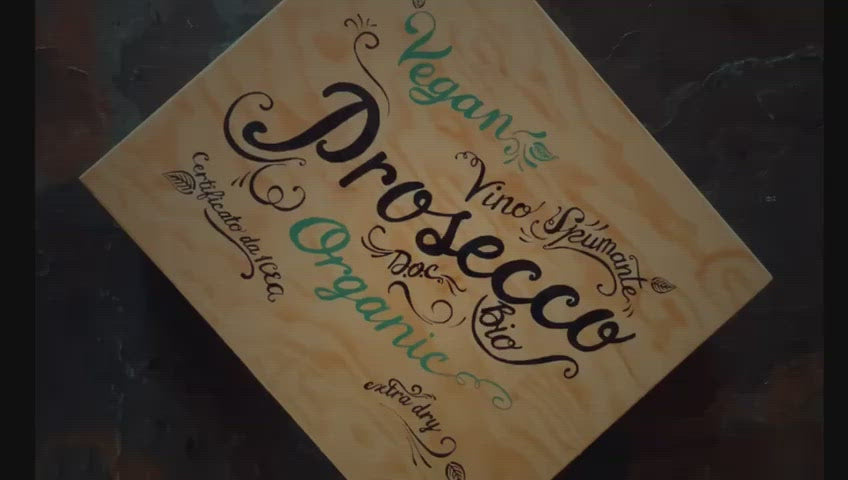 Vegan
Prosecco
Vino Spumante
Certificato da ICEA
D.O.C.
Organic
Bio
extra dry